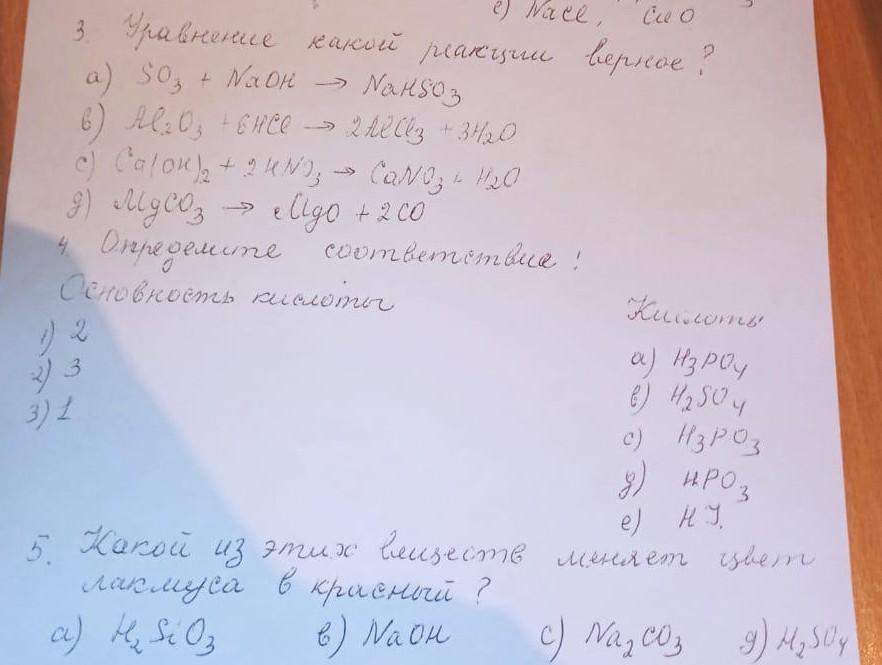 e) NaCl, CuO
3. Уравнение какой реакции верное?
a) SO₃ + NaOH → NaHSO₃
в) Al₂O₃ + 6HCl → 2AlCl₃ + 3H₂O
c) Ca(OH)₂ + 2HNO₃ → CaNO₃ + H₂O
g) MgCO₃ → MgO + 2CO
4. Определите соответствие!
Основность кислоты
Кислоты
1) 2
2) 3
3) 1
a) H₃PO₄
в) H₂SO₄
c) H₃PO₃
g) HPO₃
e) HJ.
5. Какой из этих веществ меняет цвет
лакмуса в красный?
a) H₂SiO₃ в) NaOH c) Na₂CO₃ g) H₂SO₄